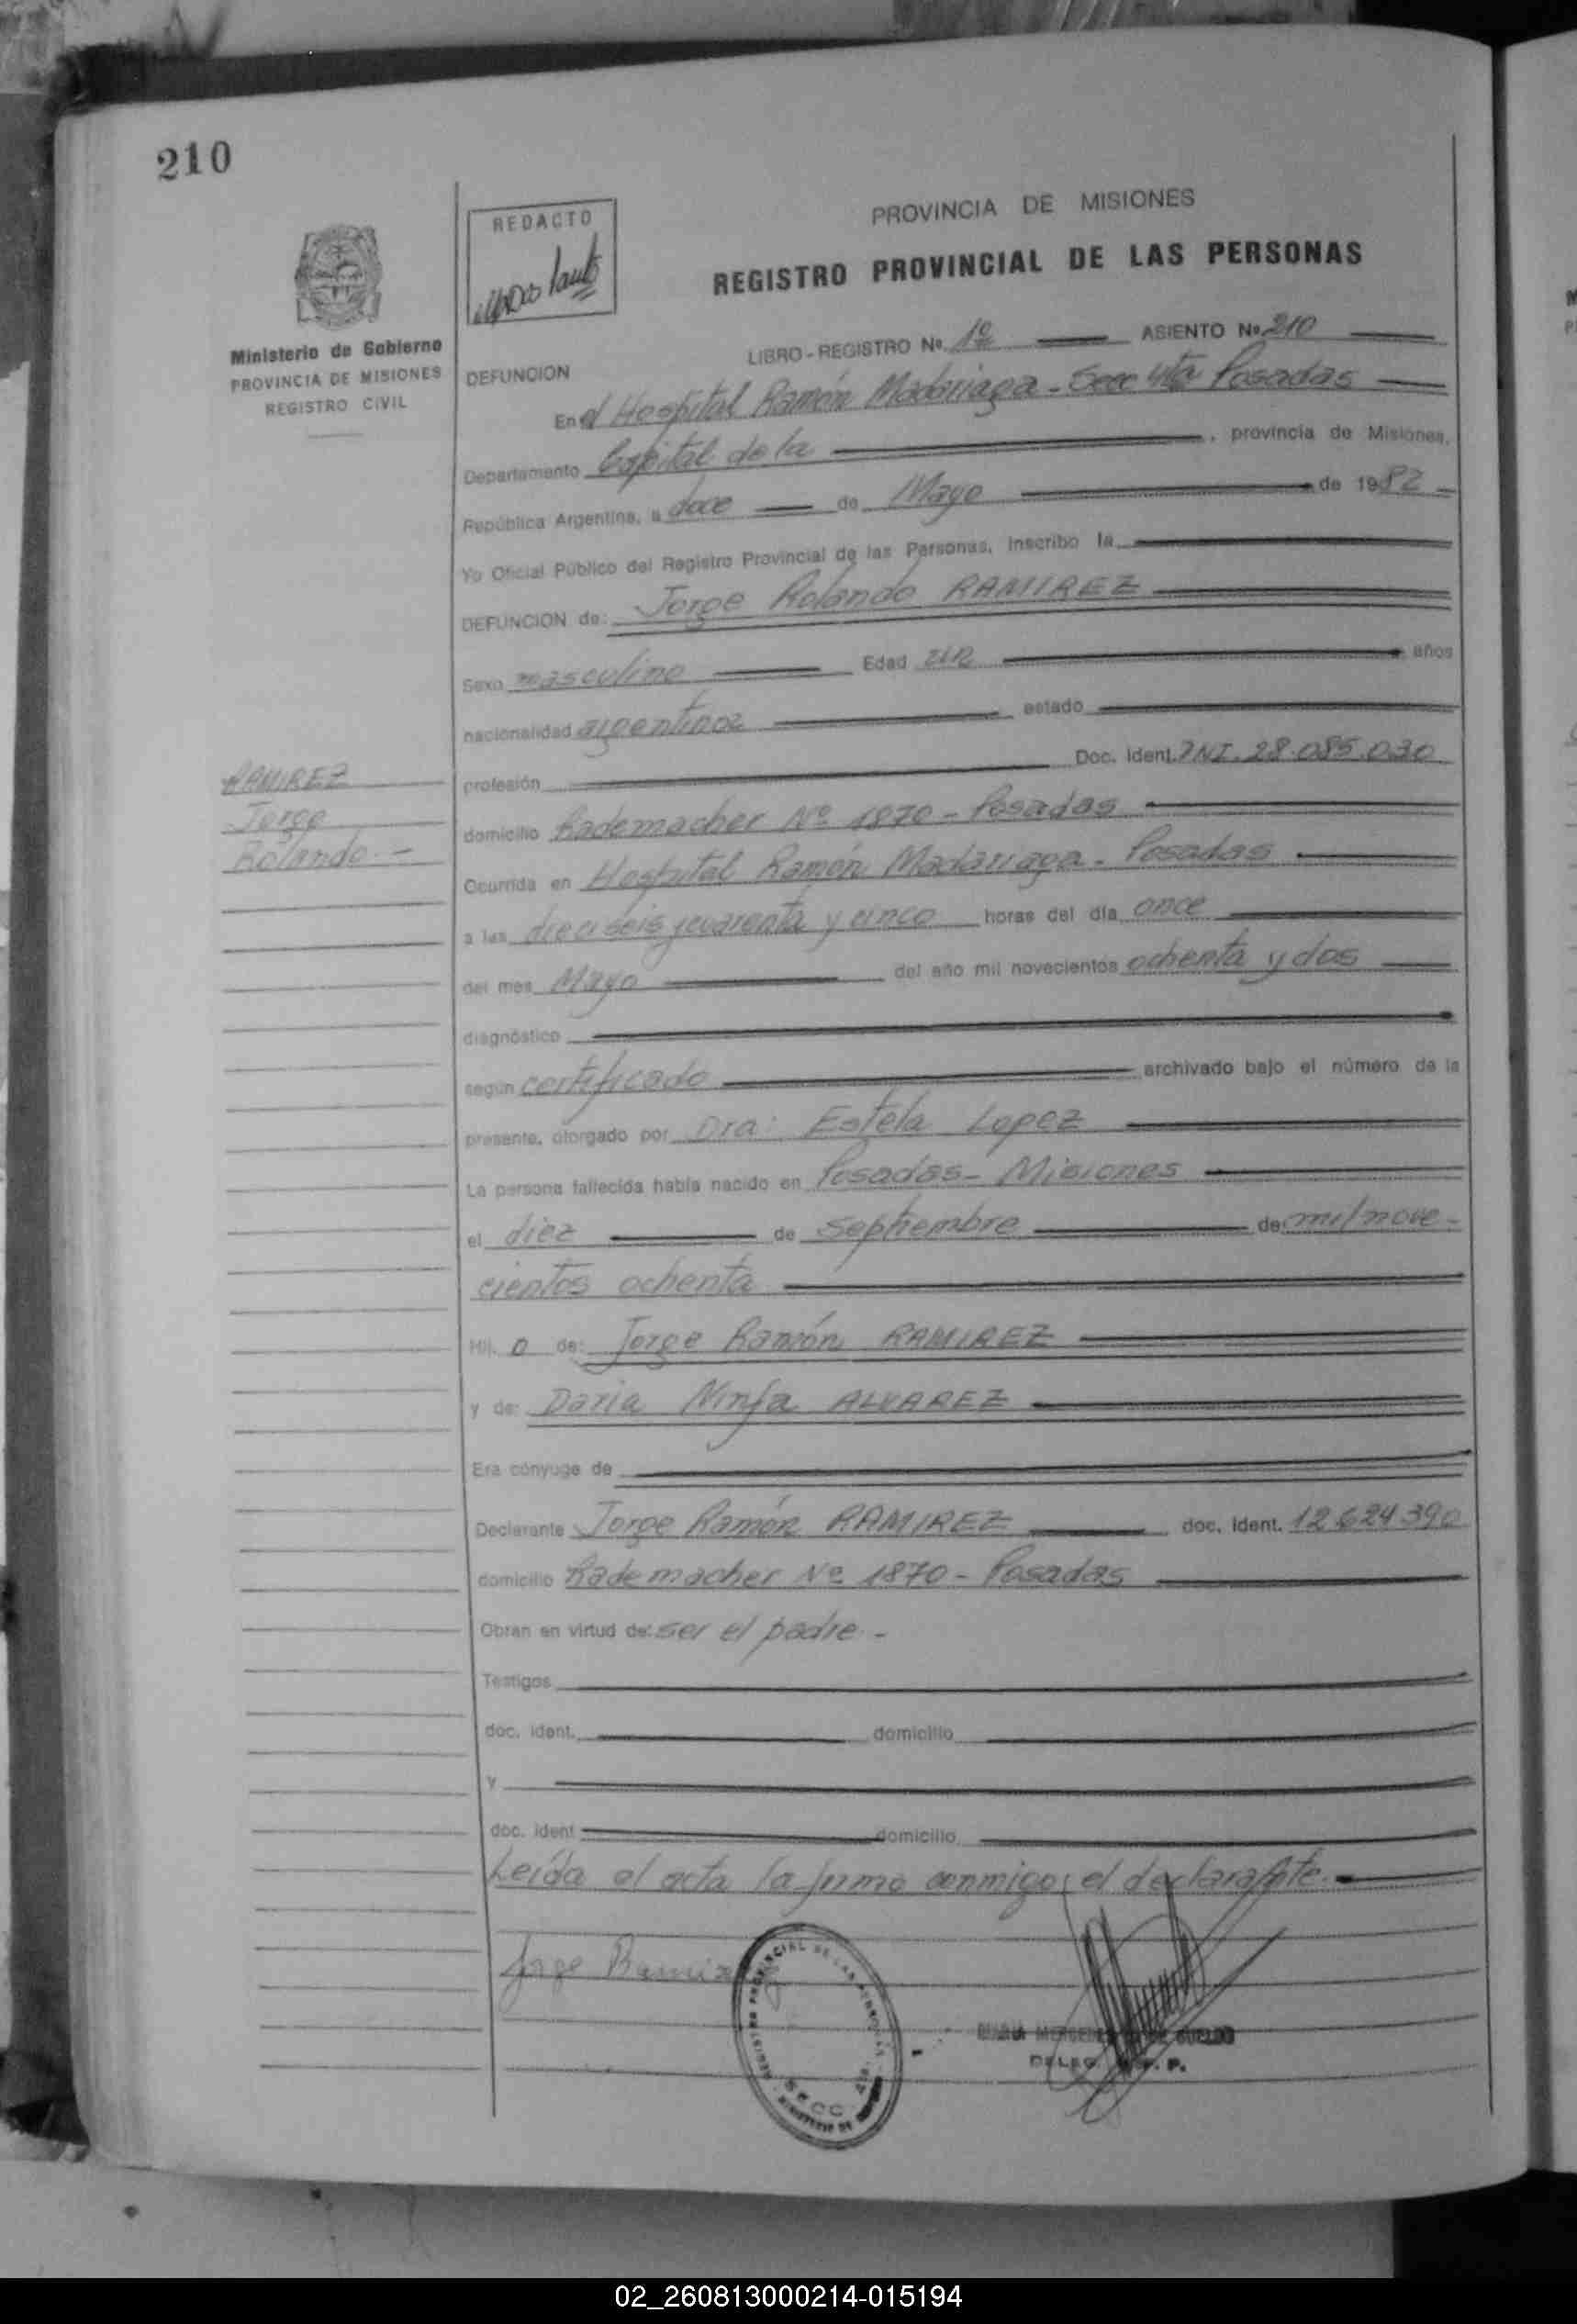 210
REDACTO
Ministerio de Gobierno
PROVINCIA DE MISIONES
REGISTRO CIVIL
PROVINCIA DE MISIONES
REGISTRO PROVINCIAL DE LAS PERSONAS
LIBRO - REGISTRO No. 1º ASIENTO No. 210
DEFUNCION
En el Hospital Ramón Madariaga - Secc 4ta Posadas
Departamento Capital de la , provincia de Misiones,
República Argentina, a doce de Mayo de 1982
Yo Oficial Público del Registro Provincial de las Personas, inscribo la
DEFUNCION de: Jorge Rolando RAMIREZ
Sexo masculino Edad un años
nacionalidad argentina estado
profesión Doc. Ident. DNI. 28.085.030
RAMIREZ
Jorge
Rolando.-
domicilio Rademacher Nº 1870 - Posadas
Ocurrida en Hospital Ramón Madariaga - Posadas
a las dieciseis y cuarenta y cinco horas del día once
del mes Mayo del año mil novecientos ochenta y dos
diagnóstico
según certificado archivado bajo el número de la
presente, otorgado por Dra: Estela Lopez
La persona fallecida había nacido en Posadas - Misiones
el diez de Septiembre de mil nove-
cientos ochenta
Hij o de: Jorge Ramón RAMIREZ
y de: Daria Ninfa ALVAREZ
Era cónyuge de
Declarante Jorge Ramón RAMIREZ doc. ident. 12.624.390
domicilio Rademacher Nº 1870 - Posadas
Obran en virtud de: ser el padre.-
Testigos
doc. ident. domicilio
y
doc. ident domicilio
Leída el acta la firma conmigo el declarante.-
Jorge Ramirez
REGISTRO PROVINCIAL DE LAS PERSONAS
SECC 4ta.
MINISTERIO DE
MARIA MERCEDES DE
DELEG. P.
02_260813000214-015194